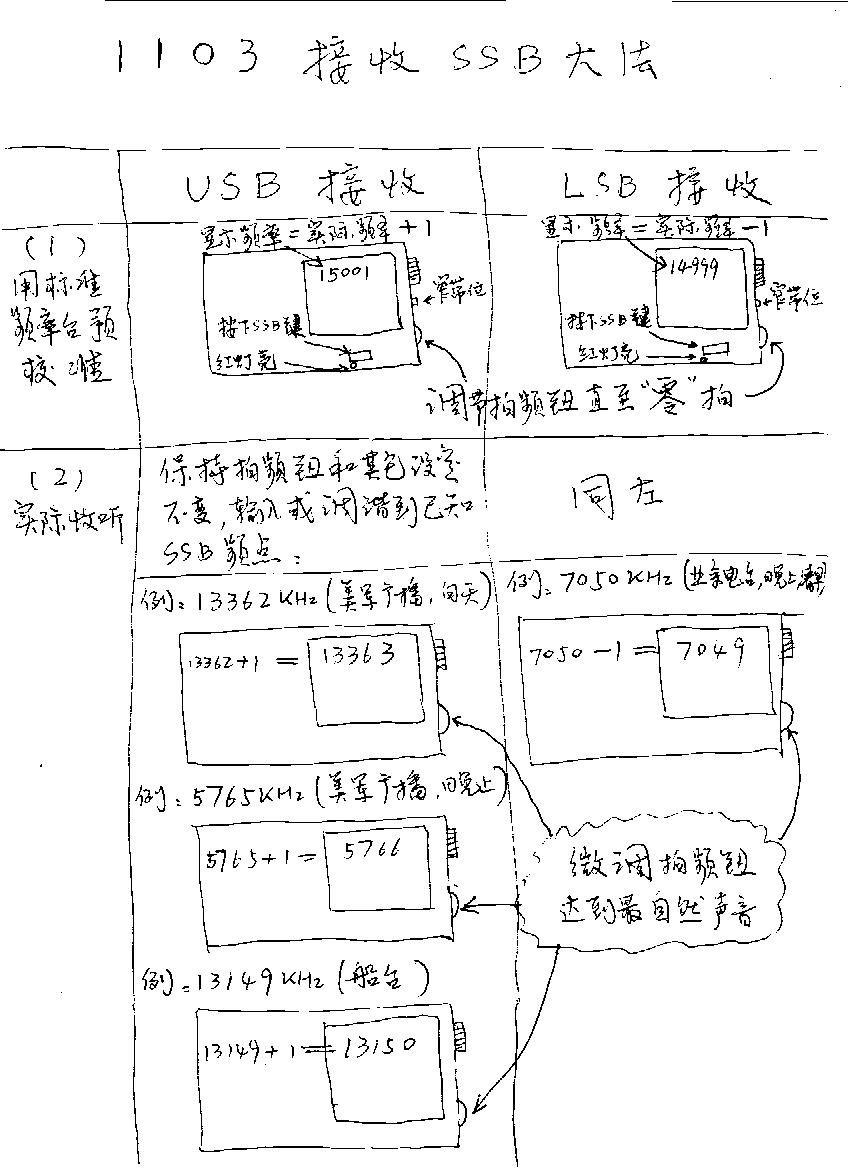 1103 接收 SSB大法
USB 接收
LSB 接收
(1)
用标准
频率台预
校准
显示频率=实际频率+1
15001
窄带位
按下SSB键
红灯亮
显示频率=实际频率-1
14999
窄带位
按下SSB键
红灯亮
调节拍频钮直至"零"拍
(2)
实际收听
保持拍频钮和其它设定
不变,输入或调谐到已知
SSB频点:
同左
例:13362KHz(美军广播,白天)
13362+1=13363
例:7050KHz(业余电台,晚上
7050-1=7049
例:5765KHz(美军广播,晚上)
5765+1=5766
微调拍频钮
达到最自然声音
例:13149KHz(船台)
13149+1=13150